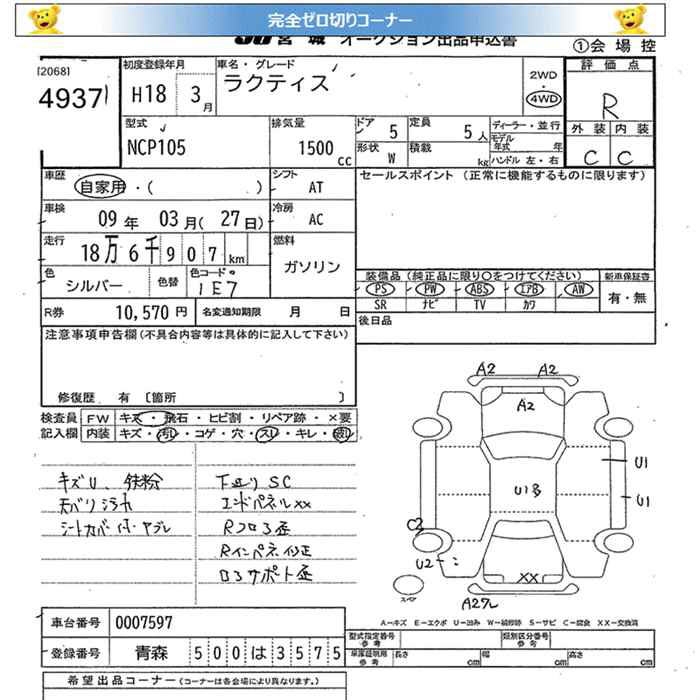 完全ゼロ切りコーナー
JU 宮城 オークション出品申込書 ①会場控
[2068] 4937
初度登録年月 H18 3月
車名・グレード ラクティス
2WD
4WD
評価点 R
外装 内装
C C
型式 NCP105
排気量 1500cc
ドア 5 定員 5人
形状 W 積載 kg
ディーラー・並行
モデル年式 年
ハンドル 左・右
車歴 自家用・( )
シフト AT
セールスポイント (正常に機能するものに限ります)
車検 09年 03月(27日)
冷房 AC
走行 18万6千907km
燃料 ガソリン
色 シルバー 色替 色コード 1E7
装備品 (純正品に限り○をつけてください) 新車保証書
PS PW ABS エアB AW 有・無
SR ナビ TV カワ
R券 10,570円 名変通知期限 月 日
後日品
注意事項申告欄(不具合内容等は具体的に記入して下さい)
修復歴 有 〔箇所 〕
検査員 FW キズ・飛石・ヒビ割・リペア跡・×要
記入欄 内装 キズ・汚れ・コゲ・穴・スレ・キレ・
キズU、鉄粉
天バリシミ
シートカバー付・ヤブレ
下廻りSC
エンドパネルXX
Rフロア歪
Rインパネ修正
ロアサポート歪
A2 A2
A2
U1多
U1
U1
C2
U2
XX
スペア
A2
A-キズ E-エクボ U-凹み W-補修跡 S-サビ C-腐食 XX-交換済
車台番号 0007597
登録番号 青森 500は3575
型式指定番号 参考 類別区分番号 参考
車庫証明用 参考 長さ cm 幅 cm 高さ cm
希望出品コーナー (コーナーは各会場により異なります。)